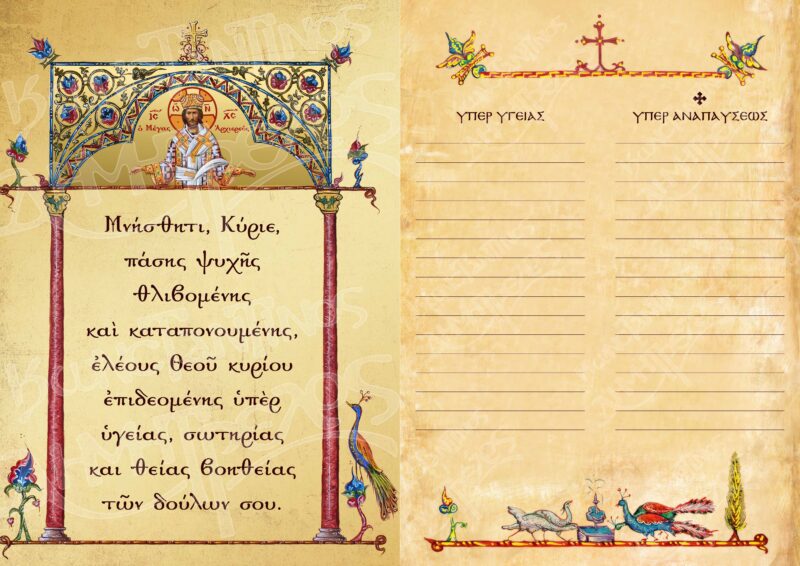 ΙϹ Ο Ω Ν ΧϹ
ὁ Μέγας Ἀρχιερεύς
Μνήσθητι, Κύριε,
πάσης ψυχῆς
θλιβομένης
καὶ καταπονουμένης,
ἐλέους Θεοῦ κυρίου
ἐπιδεομένης ὑπὲρ
ὑγείας, σωτηρίας
και θείας βοηθείας
τῶν δούλων σου.
ΥΠΕΡ ΥΓΕΙΑΣ
ΥΠΕΡ ΑΝΑΠΑΥΣΕΩΣ